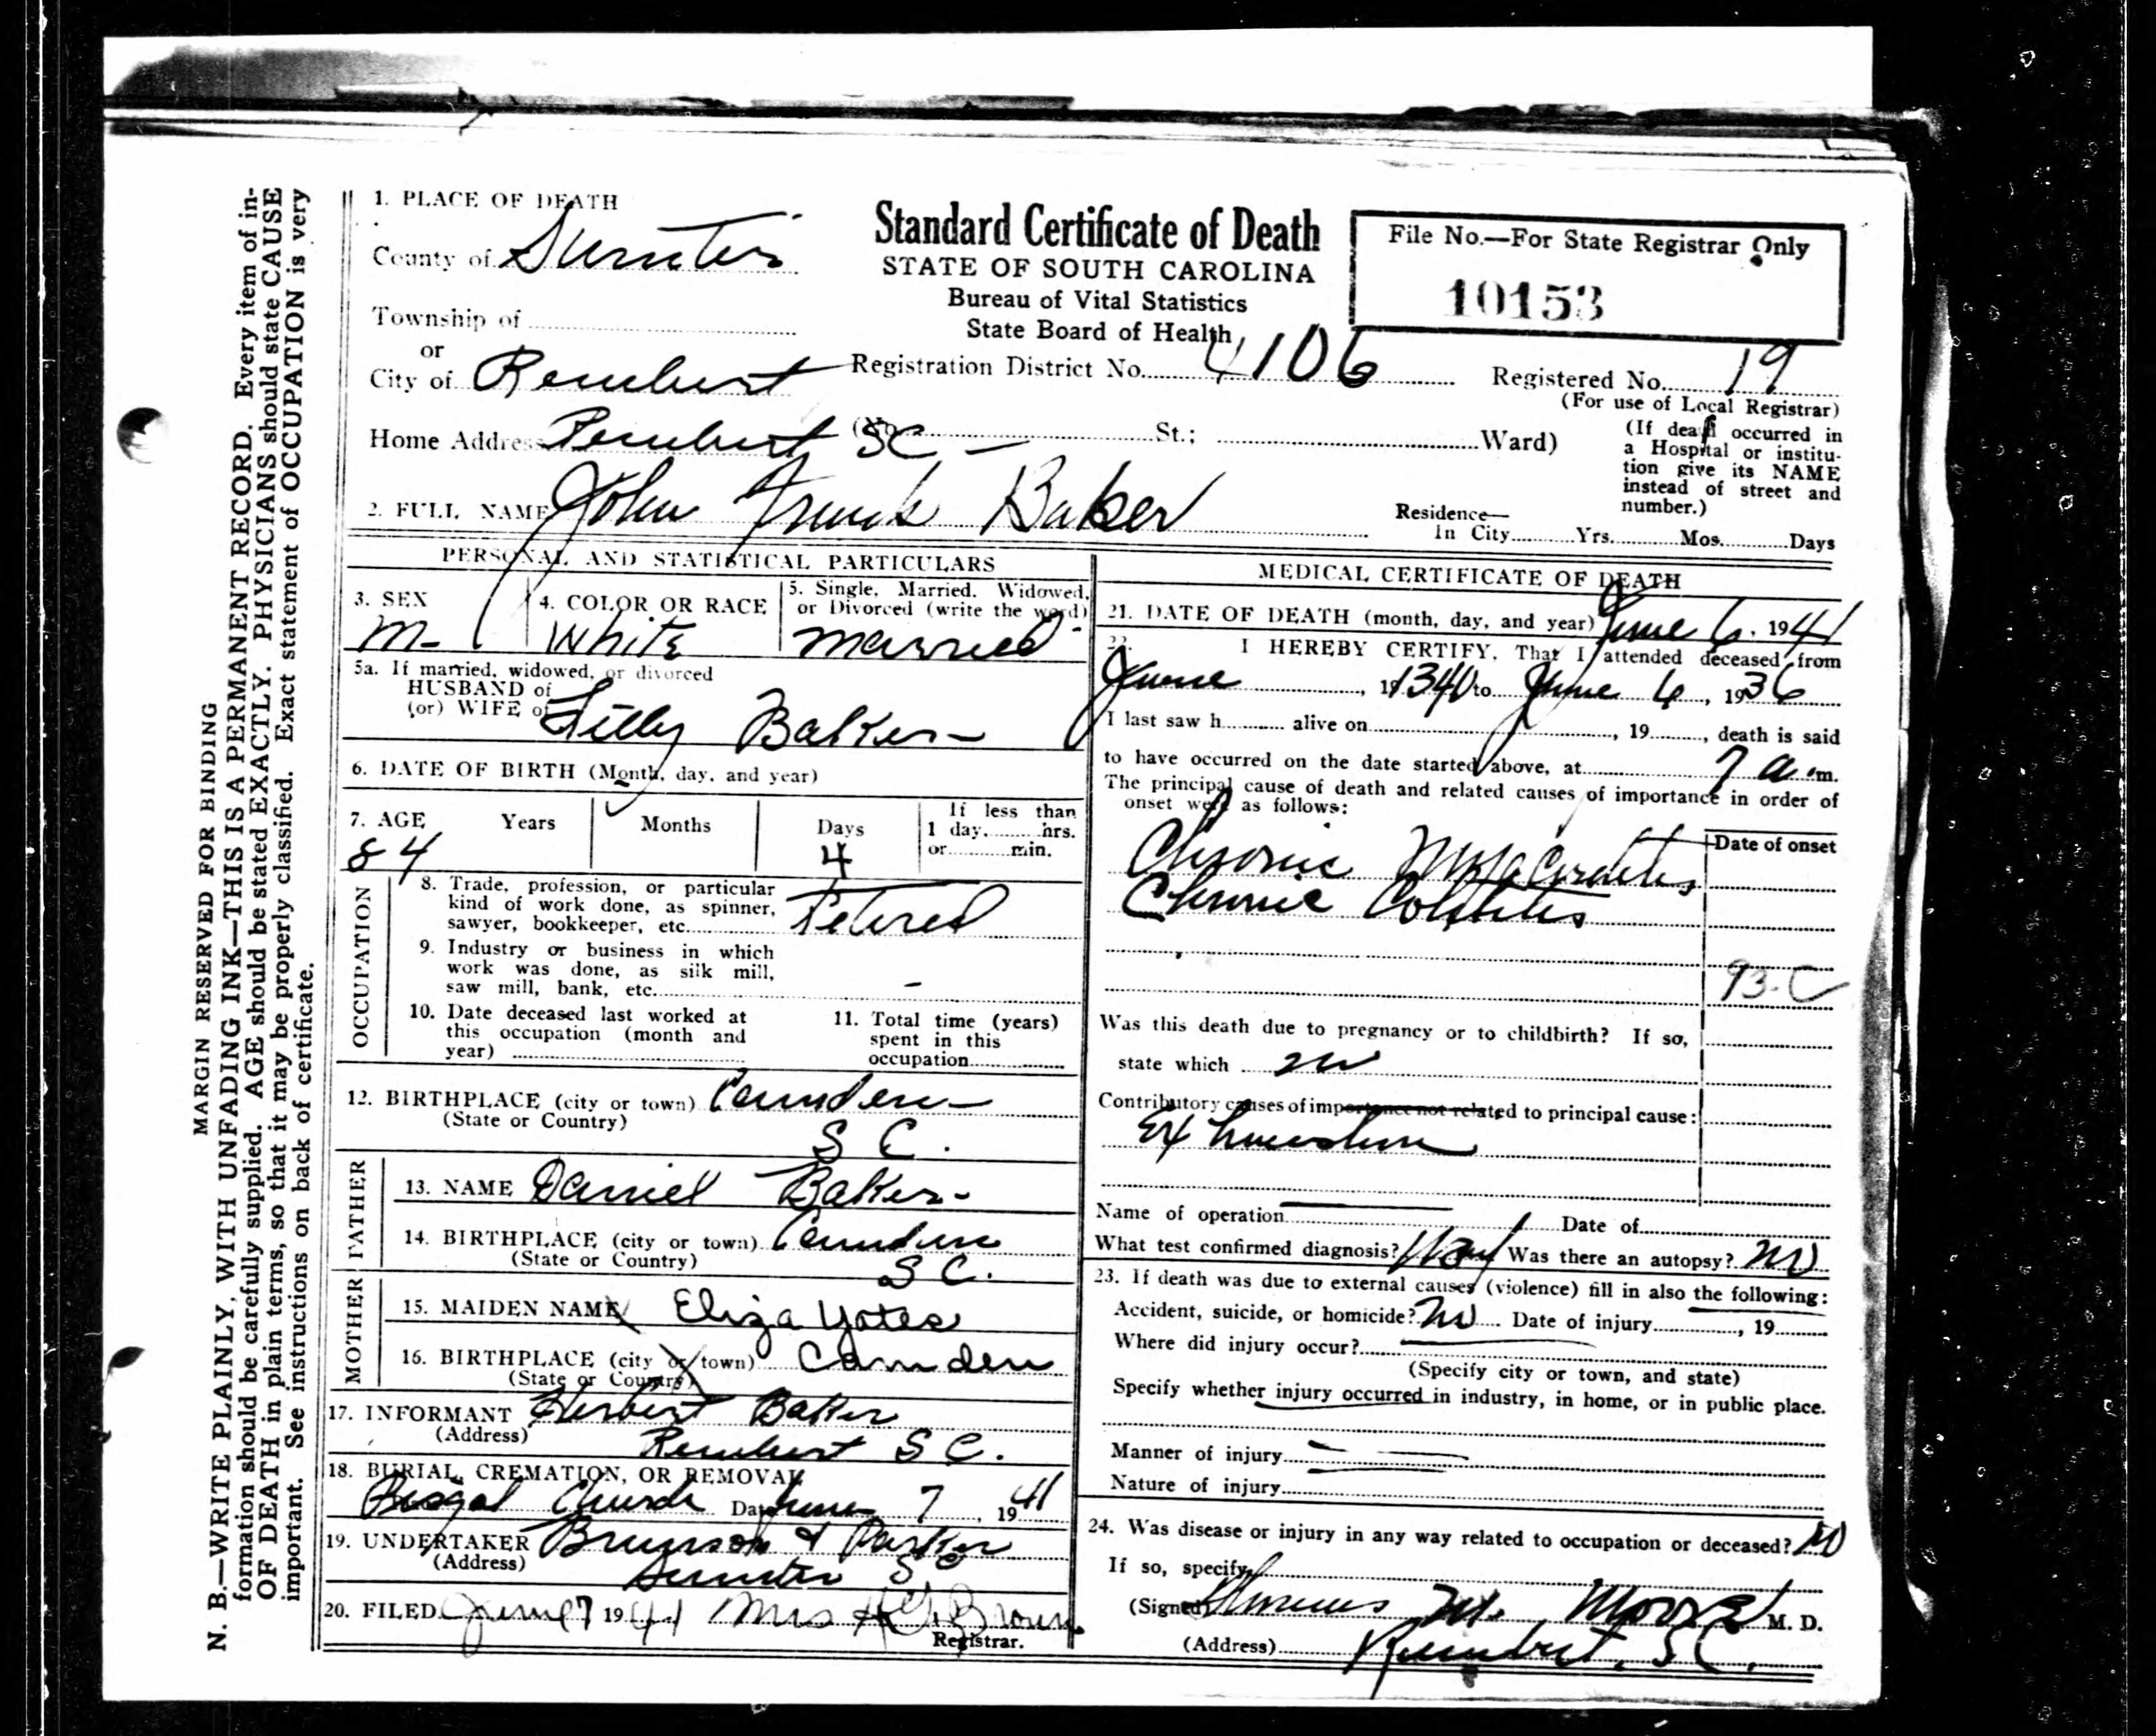 MARGIN RESERVED FOR BINDING
N. B.—WRITE PLAINLY, WITH UNFADING INK—THIS IS A PERMANENT RECORD. Every item of in-
formation should be carefully supplied. AGE should be stated EXACTLY. PHYSICIANS should state CAUSE
OF DEATH in plain terms, so that it may be properly classified. Exact statement of OCCUPATION is very
important. See instructions on back of certificate.
1. PLACE OF DEATH
County of Sumter
Township of
or
City of Rembert
Standard Certificate of Death
STATE OF SOUTH CAROLINA
Bureau of Vital Statistics
State Board of Health
File No.—For State Registrar Only
10153
Registration District No. 4106
Registered No. 19
(For use of Local Registrar)
Home Address Rembert SC (No. St.; Ward)
(If death occurred in
a Hospital or institu-
tion give its NAME
instead of street and
number.)
2. FULL NAME John Frank Baker
Residence—
In City Yrs. Mos. Days
PERSONAL AND STATISTICAL PARTICULARS
3. SEX
M-
4. COLOR OR RACE
White
5. Single, Married, Widowed,
or Divorced (write the word)
Married
5a. If married, widowed, or divorced
HUSBAND of
(or) WIFE of Lilly Baker
6. DATE OF BIRTH (Month, day, and year)
7. AGE Years Months Days
84 4
If less than
1 day, hrs.
or min.
OCCUPATION
8. Trade, profession, or particular
kind of work done, as spinner,
sawyer, bookkeeper, etc. Retired
9. Industry or business in which
work was done, as silk mill,
saw mill, bank, etc. -
10. Date deceased last worked at
this occupation (month and
year)
11. Total time (years)
spent in this
occupation
12. BIRTHPLACE (city or town) Camden
(State or Country) S C.
FATHER
13. NAME Daniel Baker
14. BIRTHPLACE (city or town) Camden
(State or Country) S C.
MOTHER
15. MAIDEN NAME Eliza Yates
16. BIRTHPLACE (city or town) Camden
(State or Country)
17. INFORMANT Herbert Baker
(Address) Rembert S C.
18. BURIAL, CREMATION, OR REMOVAL
Church Date June 7, 1941
19. UNDERTAKER Brunson & Parker
(Address) Sumter S C
20. FILED June 7 1941 Mrs Brown
Registrar.
MEDICAL CERTIFICATE OF DEATH
21. DATE OF DEATH (month, day, and year) June 6, 1941
22. I HEREBY CERTIFY, That I attended deceased from
June , 19 to June 6, 1936
I last saw h alive on , 19 , death is said
to have occurred on the date started above, at 7 a.m.
The principal cause of death and related causes of importance in order of
onset were as follows:
Date of onset
Chronic
Chronic
93-C
Was this death due to pregnancy or to childbirth? If so,
state which no
Contributory causes of importance not related to principal cause:
Exhaustion
Name of operation Date of
What test confirmed diagnosis? Was there an autopsy? no
23. If death was due to external causes (violence) fill in also the following:
Accident, suicide, or homicide? no Date of injury , 19
Where did injury occur?
(Specify city or town, and state)
Specify whether injury occurred in industry, in home, or in public place.
Manner of injury
Nature of injury
24. Was disease or injury in any way related to occupation or deceased? no
If so, specify
(Signed) M. Moore M. D.
(Address) Rembert, S.C.